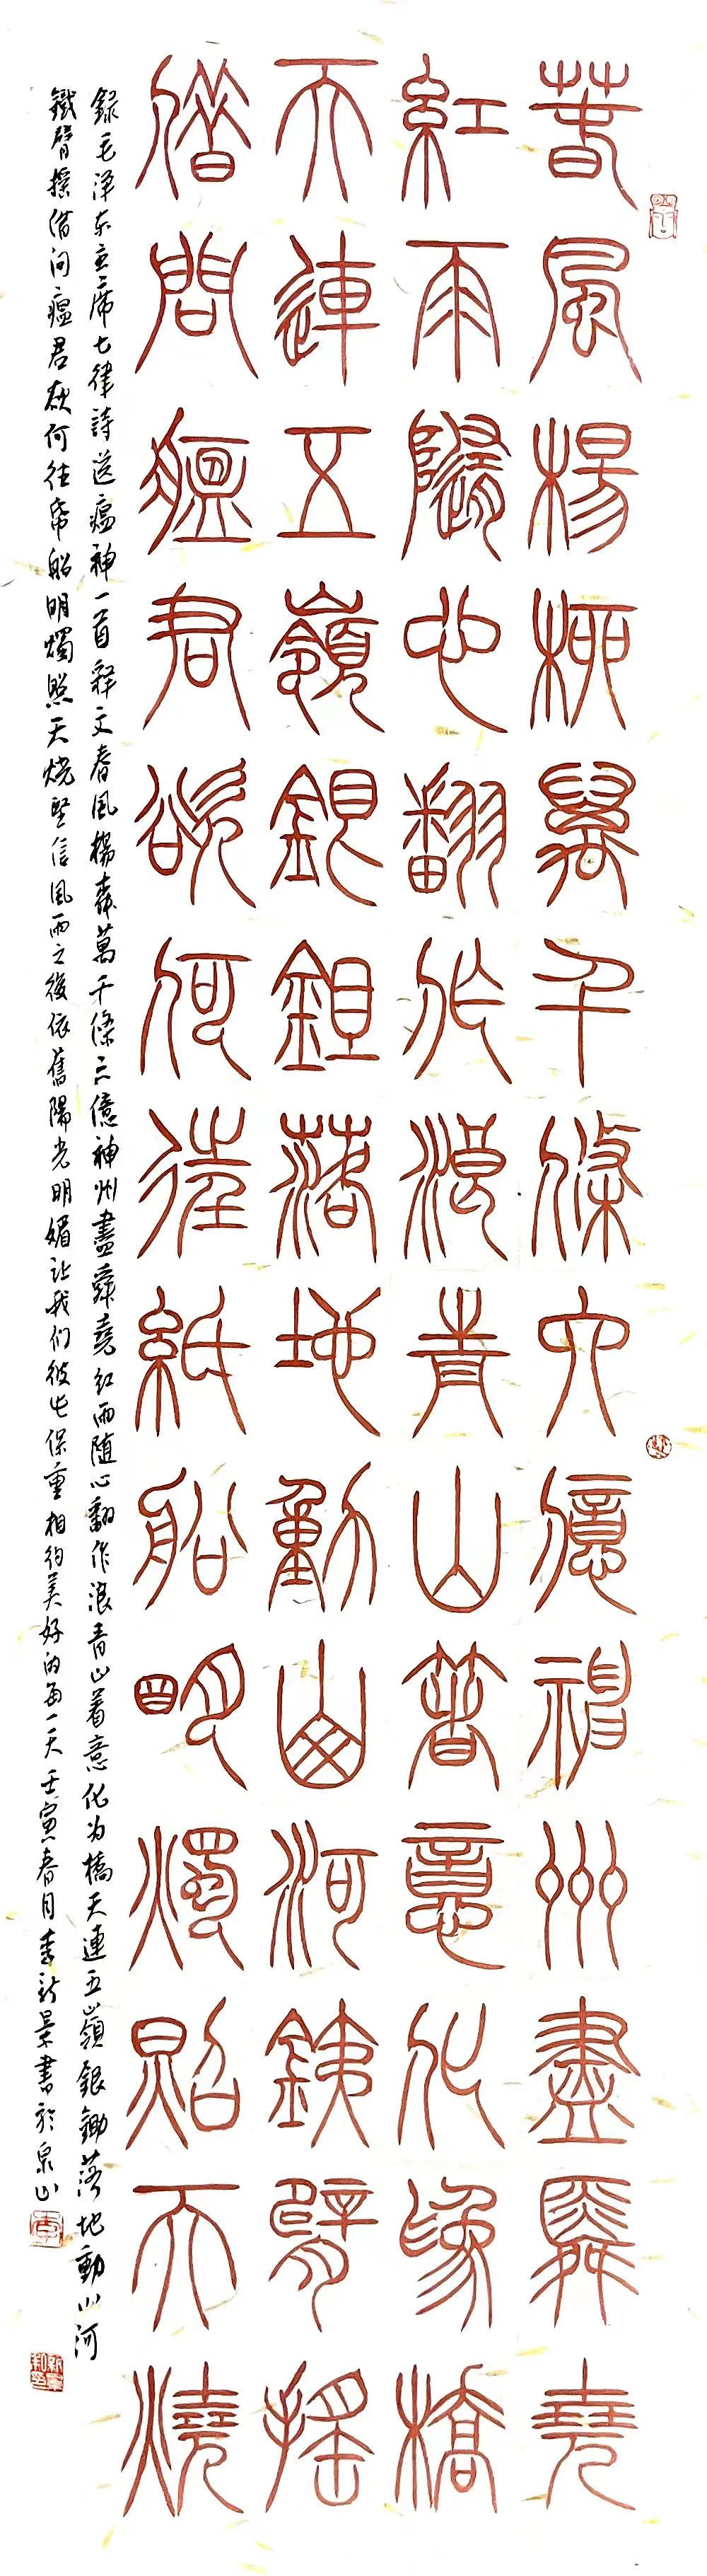 春風楊柳萬千條六億神州盡舜堯
紅雨隨心翻作浪青山著意化為橋
天連五嶺銀鉏落地動山河鐵臂搖
借問瘟君欲何往紙船明燭照天燒
録毛澤东主席七律詩送瘟神一首釋文春風楊柳萬千條六億神州盡舜堯红雨随心翻作浪青山着意化为橋天連五嶺銀鋤落地動山河
鐵臂摇借问瘟君欲何往紙船明燭照天燒堅信風雨之後依舊陽光明媚让我们彼此保重相约美好的每一天壬寅春月李新景書於泉山
李